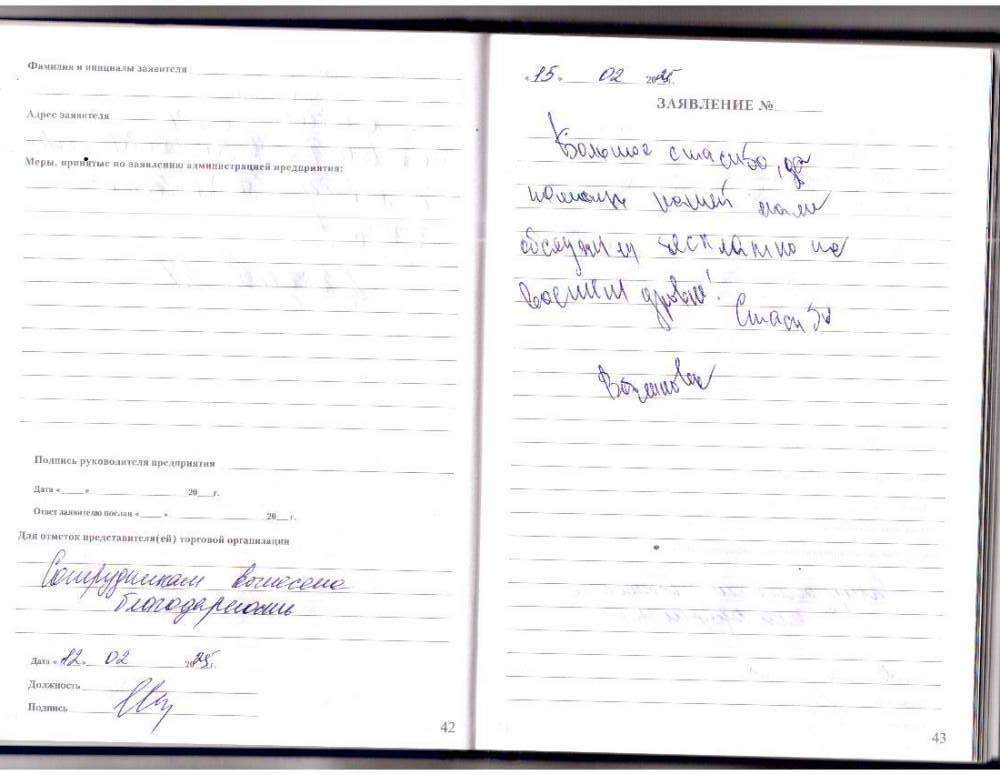 Фамилия и инициалы заявителя
Адрес заявителя
Меры, принятые по заявлению администрацией предприятия:
Подпись руководителя предприятия
Дата «    »    20    г.
Ответ заявителю послан «    »    20    г.
Для отметок представителя(ей) торговой организации
Сотрудникам вынесена
благодарность
Дата «12» 02 2025г.
Должность
Подпись
42
«15» 02 2025г.
ЗАЯВЛЕНИЕ №
Большое спасибо, за
помощь нашей маме
обслужили бесплатно на
Спасибо
43